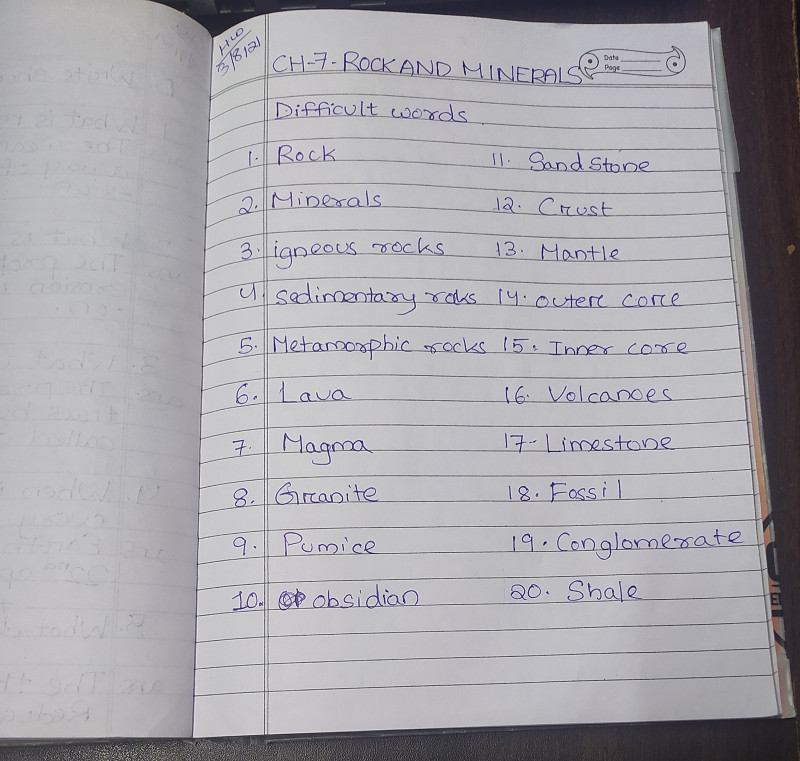 HW
3/8/21
CH-7-ROCK AND MINERALS
Date
Page
Difficult words
1. Rock
2. Minerals
3. igneous rocks
4. Sedimentary rocks
5. Metamorphic rocks
6. Lava
7. Magma
8. Granite
9. Pumice
10. obsidian
11. Sandstone
12. Crust
13. Mantle
14. outer core
15. Inner core
16. Volcanoes
17- Limestone
18. Fossil
19. Conglomerate
20. Shale